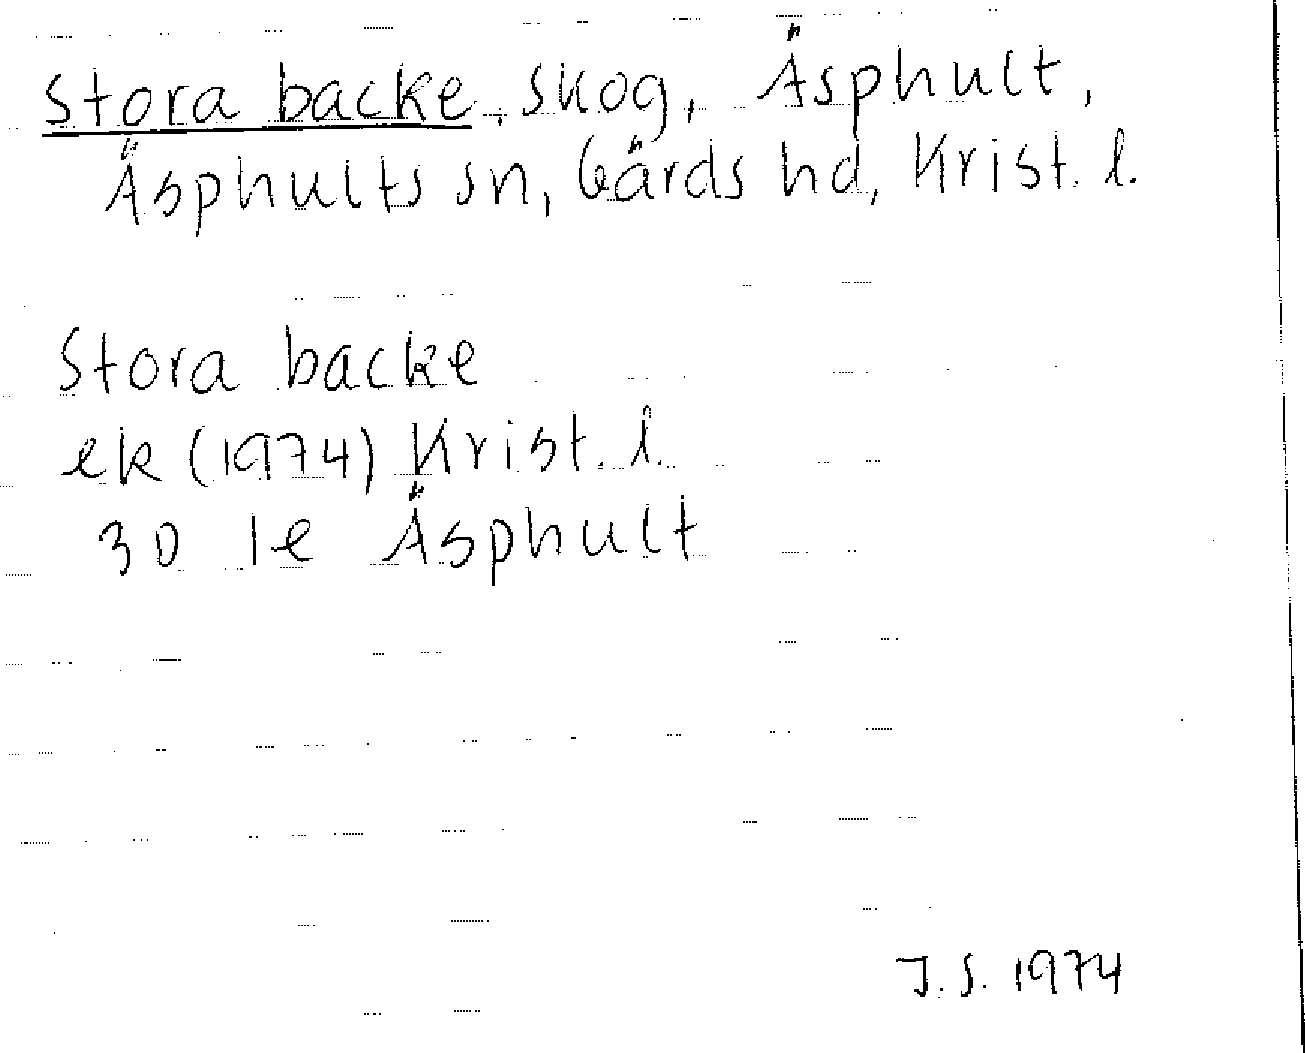 Stora backe, skog, Äsphult,
Äsphults sn, Gärds hd, Krist. l.
Stora backe
ek (1974) Krist. l.
30 1e Äsphult
J.S. 1974